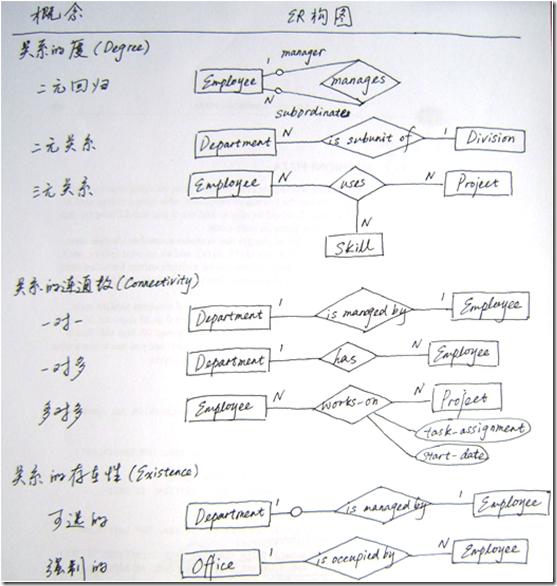 概念 ER构图
关系的度(Degree)
1 manager
二元回归 Employee manages
N subordinate
二元关系 Department N is subunit of 1 Division
三元关系 Employee N uses N Project
N
Skill
关系的连通数(Connectivity)
一对一 Department 1 is managed by 1 Employee
一对多 Department 1 has N Employee
多对多 Employee N works-on N Project
task-assignment
start-date
关系的存在性(Existence)
可选的 Department 1 is managed by 1 Employee
强制的 Office 1 is occupied by N Employee